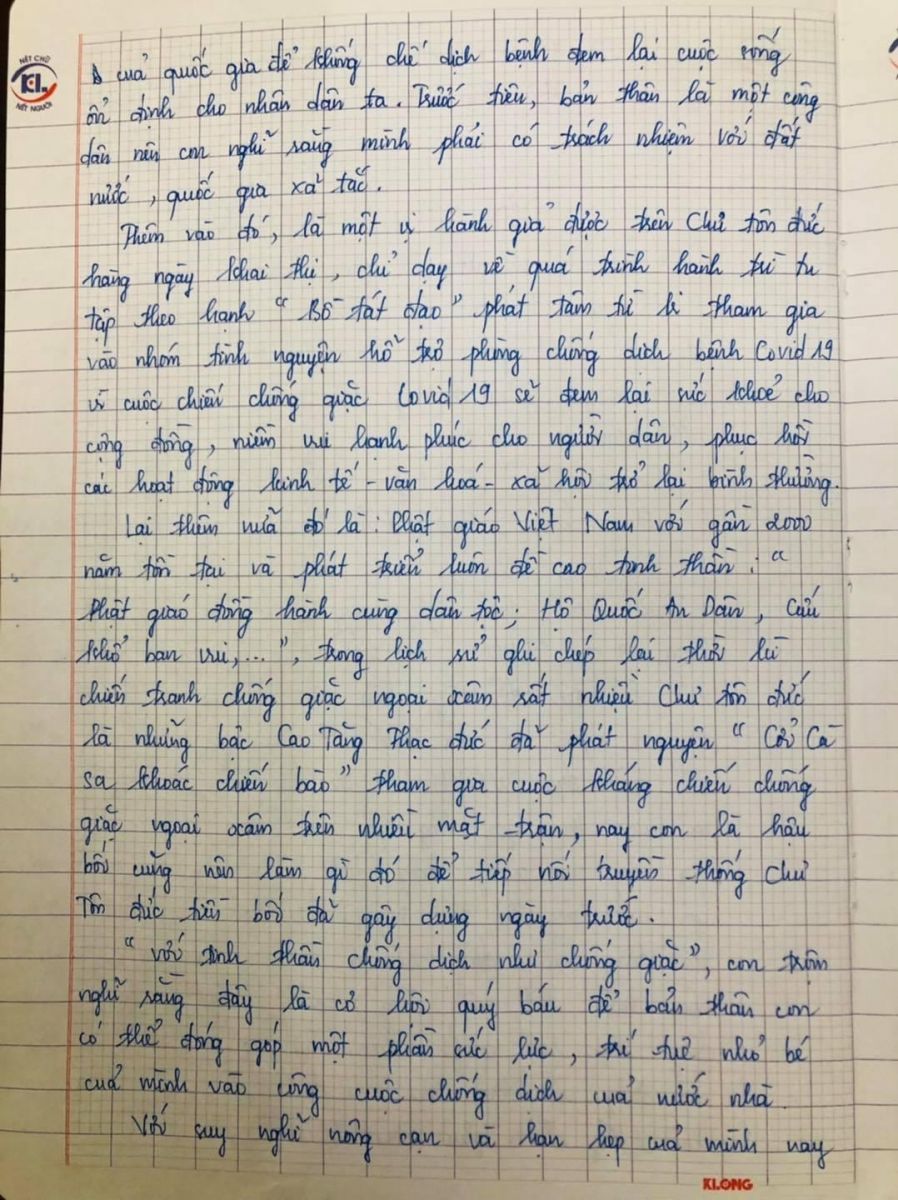 của quốc gia để khống chế dịch bệnh đem lại cuộc sống
ổn định cho nhân dân ta. Trước tiên, bản thân là một công
dân nên con nghĩ rằng mình phải có trách nhiệm với đất
nước, quốc gia xã tắc.
Thêm vào đó, là một vị hành giả được trên Chư tôn đức
hàng ngày khai thị, chỉ dạy về quá trình hành trì tu
tập theo hạnh "Bồ tát đạo" phát tâm từ bi tham gia
vào nhóm tình nguyện hỗ trợ phòng chống dịch bệnh Covid 19
vì cuộc chiến chống giặc Covid 19 sẽ đem lại sức khoẻ cho
cộng đồng, niềm vui hạnh phúc cho người dân, phục hồi
các hoạt động kinh tế - văn hoá - xã hội trở lại bình thường.
Lại thêm nữa đó là: Phật giáo Việt Nam với gần 2000
năm tồn tại và phát triển luôn đề cao tinh thần: "
Phật giáo đồng hành cùng dân tộc; Hộ Quốc An Dân, Cứu
khổ ban vui,...", trong lịch sử ghi chép lại thời kì
chiến tranh chống giặc ngoại xâm rất nhiều Chư tôn đức
là những bậc Cao Tăng Thạc đức đã phát nguyện "Cởi Cà
sa khoác chiến bào" tham gia cuộc kháng chiến chống
giặc ngoại xâm trên nhiều mặt trận, nay con là hậu
bối cũng nên làm gì đó để tiếp nối truyền thống Chư
Tôn đức tiền bối đã gây dựng ngày trước.
"Với tinh thần chống dịch như chống giặc", con trộm
nghĩ rằng đây là cơ hội quý báu để bản thân con
có thể đóng góp một phần sức lực, trí tuệ nhỏ bé
của mình vào công cuộc chống dịch của nước nhà.
Với suy nghĩ nông cạn và hạn hẹp của mình nay
NÉT CHỮ
KL
NÉT NGƯỜI
KLONG